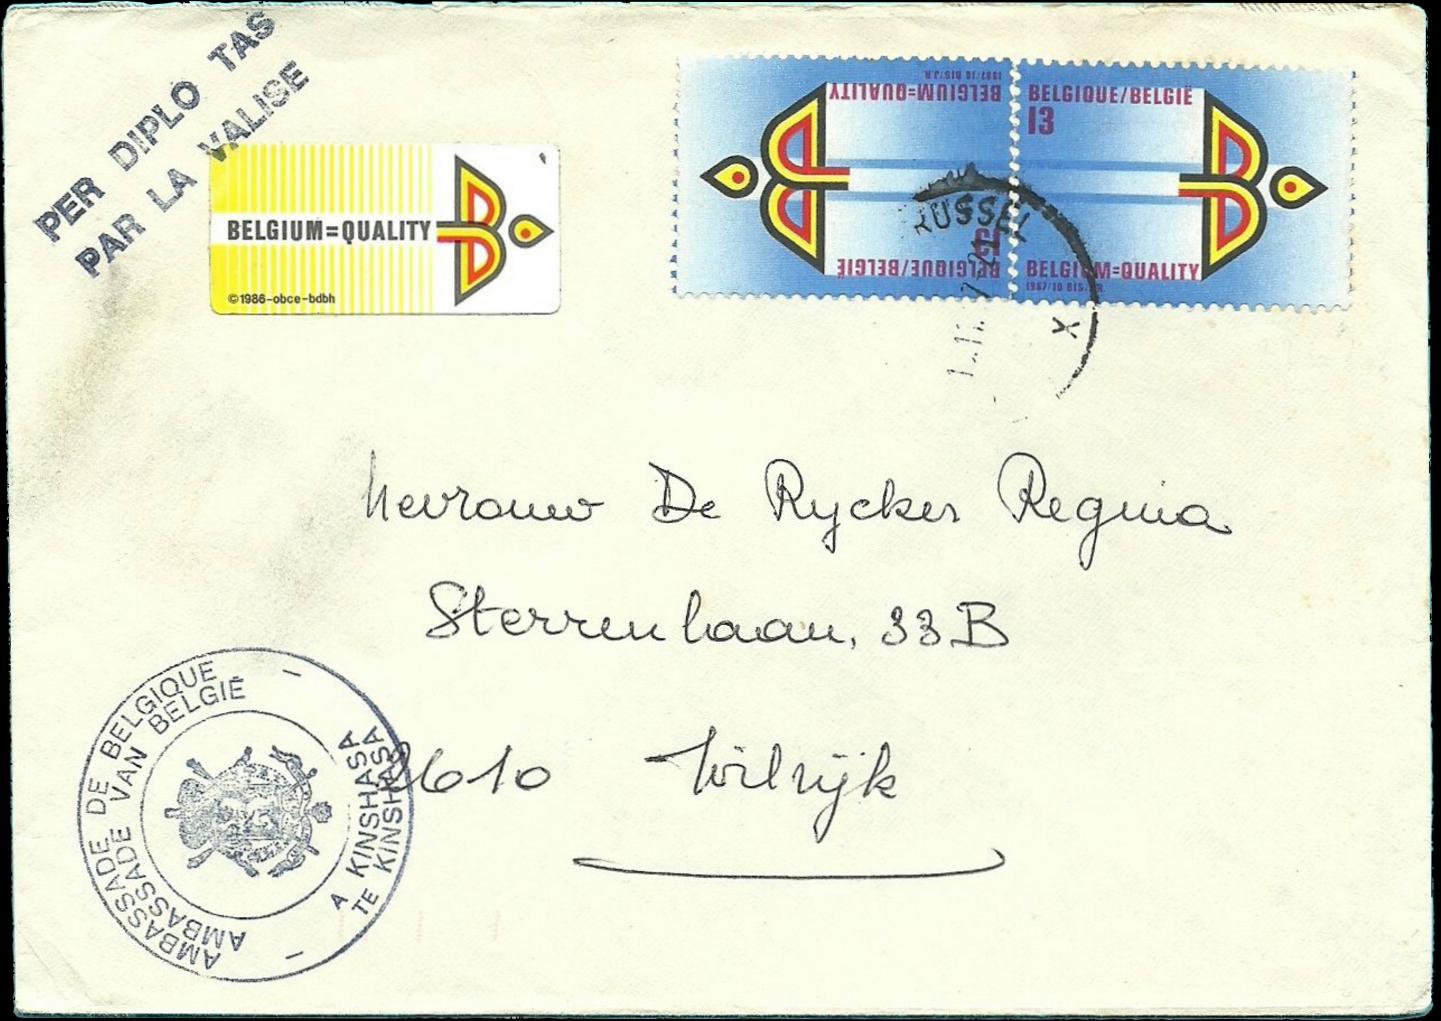 PER DIPLO TAS
PAR LA VALISE
BELGIUM=QUALITY
©1986-obce-bdbh
BELGIQUE/BELGIË
13
BELGIUM=QUALITY
1987/10 BIS/J.R.
BELGIQUE/BELGIË
13
BELGIUM=QUALITY
1987/10 BIS/J.R.
RUSSEL
X
Mevrouw De Rycker Regina
Sterrenlaan, 33B
2610 Wilrijk
AMBASSADE DE BELGIQUE
AMBASSADE VAN BELGIË
A KINSHASA
TE KINSHASA